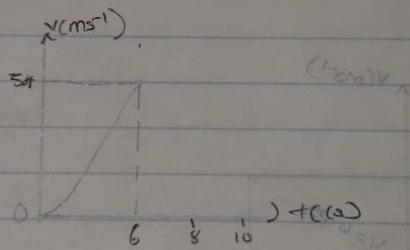 v(ms⁻¹)
54
0
6 8 10 t(s)